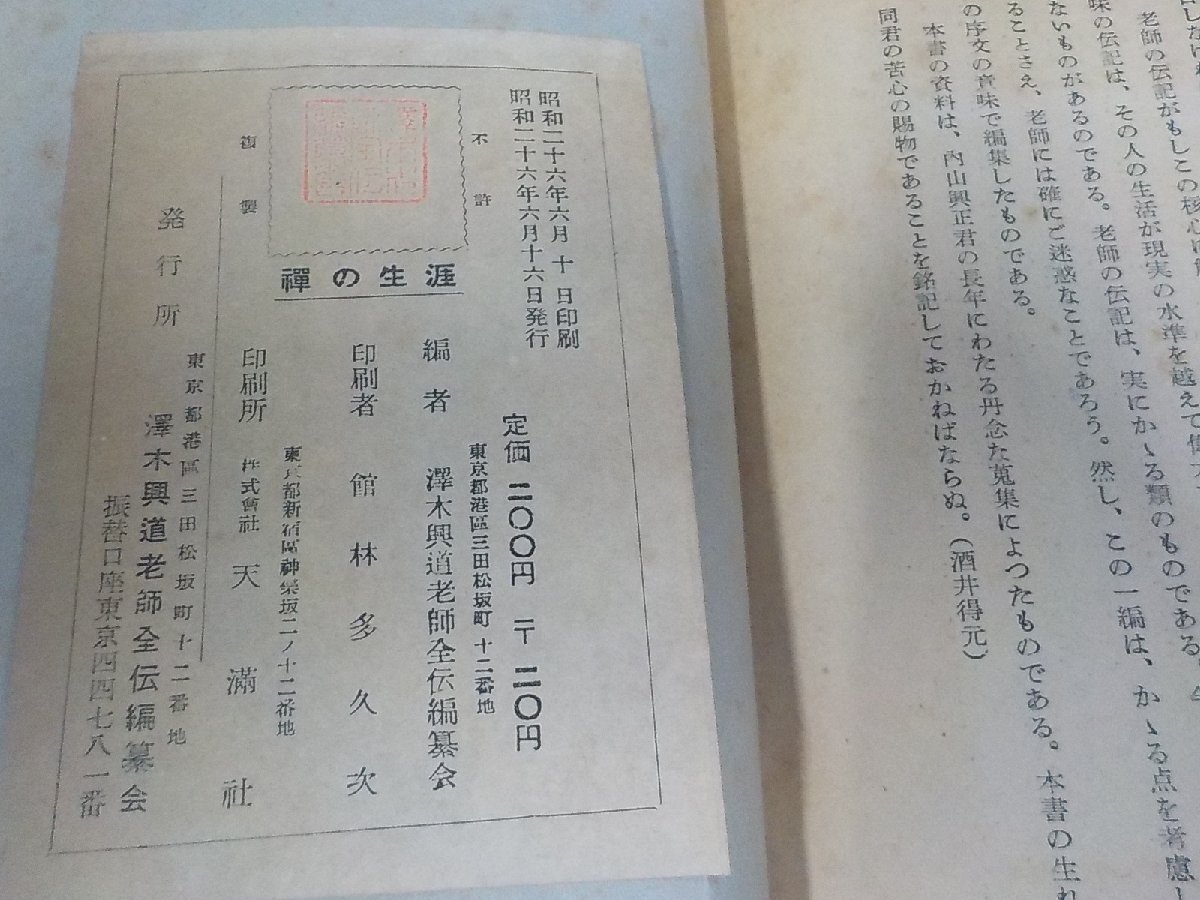 老師の伝記がもしこの核心に
味の伝記は、その人の生活が現実の水準を越えて
ないものがあるのである。老師の伝記は、実にかゝる類のものである
ることさえ、老師には確にご迷惑なことであろう。然し、この一編は、かゝる点を考慮し
の序文の意味で編集したものである。
本書の資料は、内山興正君の長年にわたる丹念な蒐集によつたものである。本書の生れ
同君の苦心の賜物であることを銘記しておかねばならぬ。(酒井得元)
昭和二十六年六月十日印刷
昭和二十六年六月十六日発行
不許
複製
禪の生涯
定価 二〇〇円 〒 二〇円
東京都港區三田松坂町十二番地
編者 澤木興道老師全伝編纂会
印刷者 館林多久次
東京都新宿區神樂坂二ノ十二番地
印刷所 株式會社 天満社
東京都港區三田松坂町十二番地
発行所 澤木興道老師全伝編纂会
振替口座東京四四七八一番